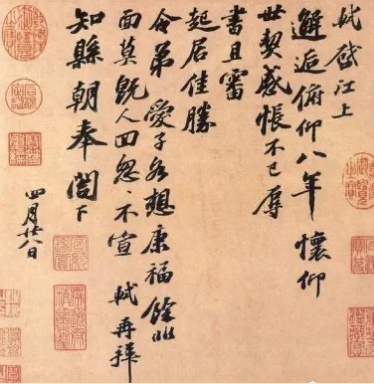 軾啓江上
邂逅俯仰八年懷仰
世契感悵不已辱
書且審
起居佳勝
令弟愛子各想康福餘非
面莫既人回怱〻不宣 軾再拜
知縣朝奉閣下
四月廿八日